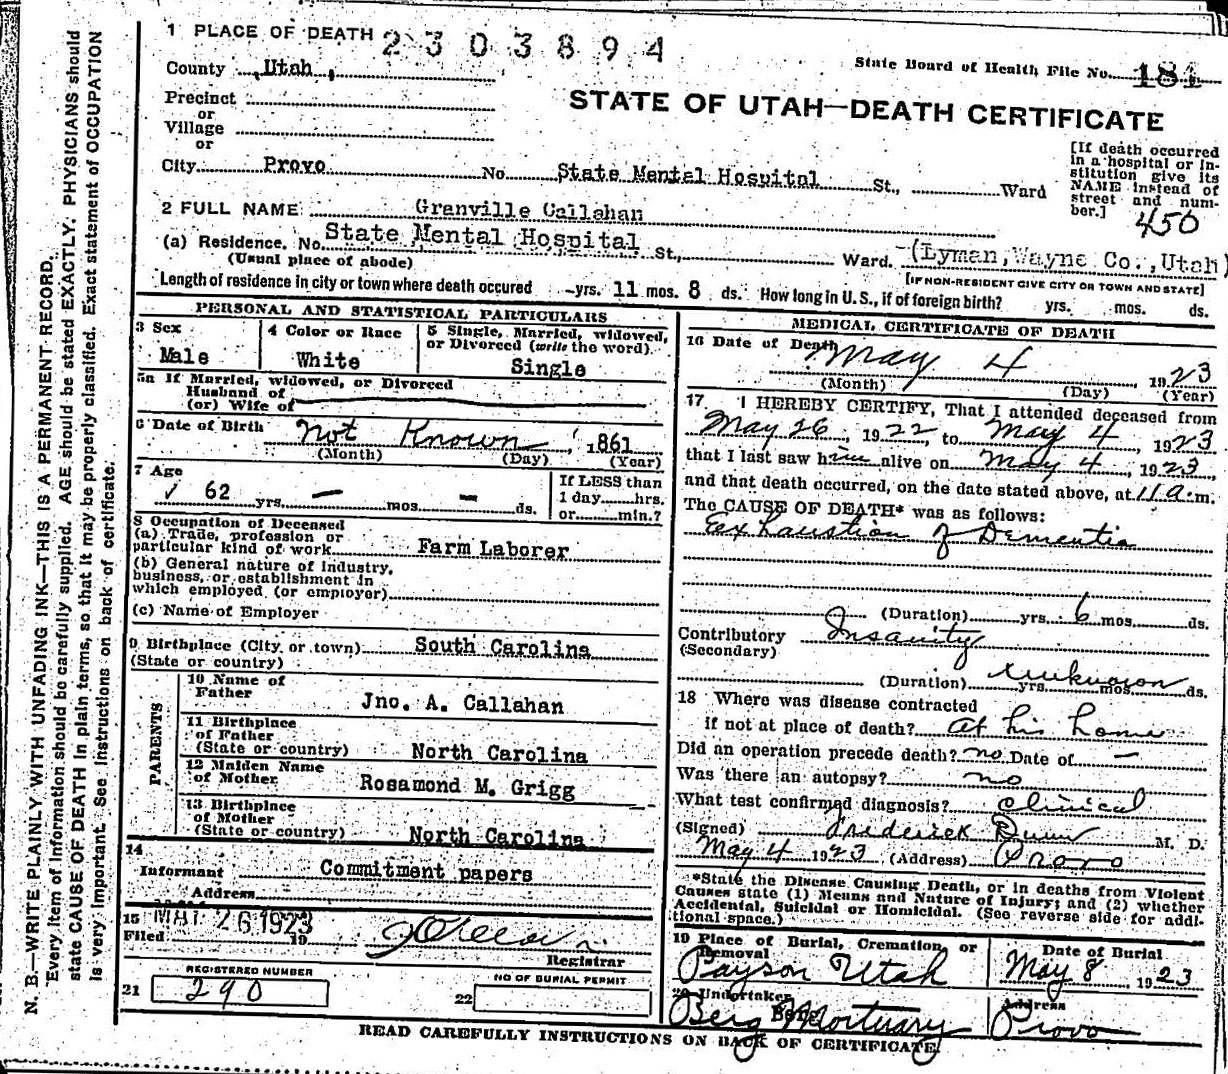 1 PLACE OF DEATH 2303894
State Board of Health File No. 181
County Utah
STATE OF UTAH—DEATH CERTIFICATE
Precinct
or
Village
or
City Provo No. State Mental Hospital St., Ward
[If death occurred in a hospital or institution give its NAME instead of street and number.]
450
2 FULL NAME Granville Callahan
(a) Residence. No. State Mental Hospital St., Ward. (Lyman, Wayne Co., Utah)
(Usual place of abode) [IF NON-RESIDENT GIVE CITY OR TOWN AND STATE]
Length of residence in city or town where death occured -yrs. 11 mos. 8 ds. How long in U. S., if of foreign birth? yrs. mos. ds.
PERSONAL AND STATISTICAL PARTICULARS
3 Sex
Male
4 Color or Race
White
5 Single, Married, widowed,
or Divorced (write the word)
Single
5a If Married, widowed, or Divorced
Husband of
(or) Wife of
6 Date of Birth Not Known, 1861
(Month) (Day) (Year)
7 Age
62 yrs. — mos. — ds.
If LESS than
1 day hrs.
or min.?
8 Occupation of Deceased
(a) Trade, profession or
particular kind of work Farm Laborer
(b) General nature of industry,
business, or establishment in
which employed (or employer)
(c) Name of Employer
9 Birthplace (City or town) South Carolina
(State or country)
PARENTS
10 Name of
Father Jno. A. Callahan
11 Birthplace
of Father
(State or country) North Carolina
12 Maiden Name
of Mother Rosamond M. Grigg
13 Birthplace
of Mother
(State or country) North Carolina
14
Informant Commitment papers
Address
15 MAY 26 1923
Filed 19
Registrar
21 REGISTERED NUMBER
290
22 NO OF BURIAL PERMIT
MEDICAL CERTIFICATE OF DEATH
16 Date of Death May 4, 1923
(Month) (Day) (Year)
17 I HEREBY CERTIFY, That I attended deceased from
May 26, 1922, to May 4 1923
that I last saw him alive on May 4, 1923,
and that death occurred, on the date stated above, at 11 a.m.
The CAUSE OF DEATH* was as follows:
Exhaustion of Dementia
(Duration) yrs. 6 mos. ds.
Contributory Insanity
(Secondary)
(Duration) unknown yrs. mos. ds.
18 Where was disease contracted
if not at place of death? at his home
Did an operation precede death? no Date of —
Was there an autopsy? no
What test confirmed diagnosis? clinical
(Signed) Frederick Dunn M. D.
May 4 1923 (Address) Provo
*State the Disease Causing Death, or in deaths from Violent
Causes state (1) Means and Nature of Injury; and (2) whether
Accidental, Suicidal or Homicidal. (See reverse side for addi-
tional space.)
19 Place of Burial, Cremation, or
Removal
Payson Utah
Date of Burial
May 8, 1923
20 Undertaker
Berg Mortuary
Address
Provo
READ CAREFULLY INSTRUCTIONS ON BACK OF CERTIFICATE.
N. B.—WRITE PLAINLY WITH UNFADING INK—THIS IS A PERMANENT RECORD.
Every item of information should be carefully supplied. AGE should be stated EXACTLY. PHYSICIANS should
state CAUSE OF DEATH in plain terms, so that it may be properly classified. Exact statement of OCCUPATION
is very important. See instructions on back of certificate.